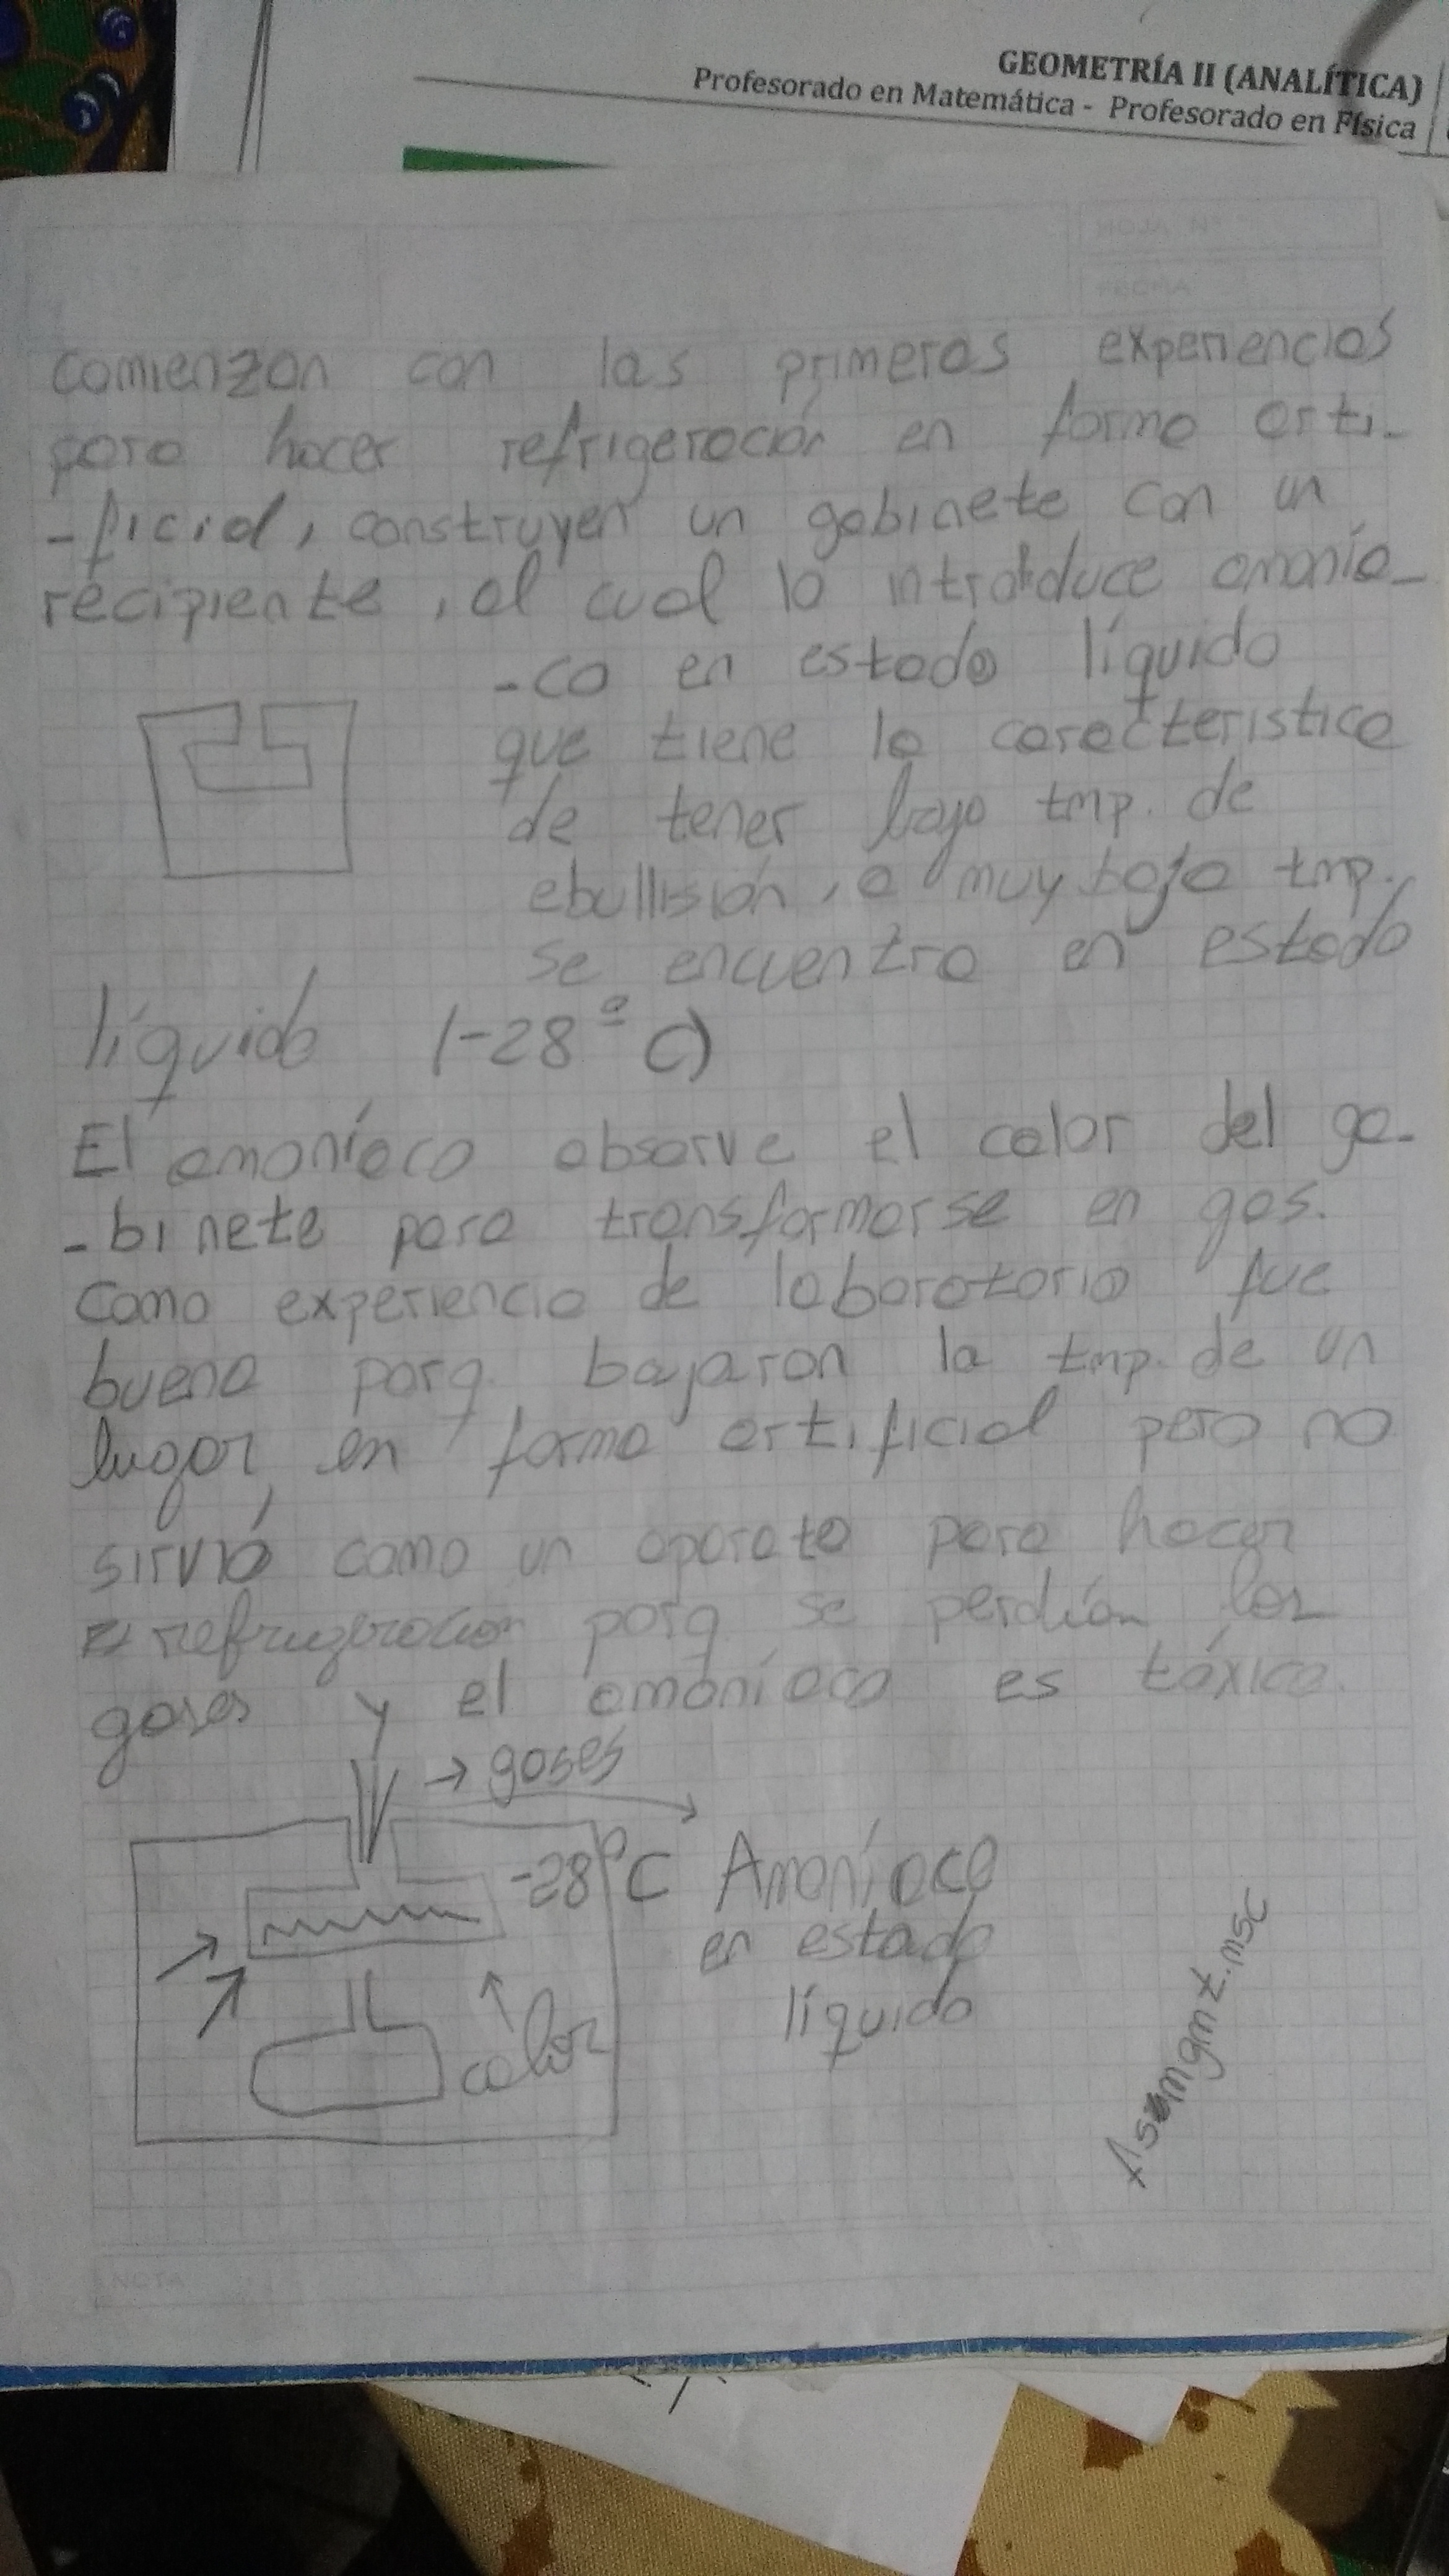 GEOMETRÍA II (ANALÍTICA)
Profesorado en Matemática - Profesorado en Física
HOJA Nº
FECHA
comienzan con las primeras experiencias
para hacer refrigeración en forma arti-
-ficial, construyen un gabinete con un
recipiente, al cual lo introduce amonía-
-co en estado líquido
que tiene la caracteristica
de tener baja tmp. de
ebullisión, a muy baja tmp.
se encuentra en estado
líquido (-28º C)
El amoníaco absorve el calor del ga-
-binete para transformarse en gas.
Como experiencia de laboratorio fue
buena porq. bajaron la tmp. de un
lugar en forma artificial pero no
sirvió como un aparato para hacer
refrigeracion porq se perdían los
gases y el amoníaco es tóxico.
→ gases
-28ºC Amoníaco
en estado
líquido
calor
NOTA